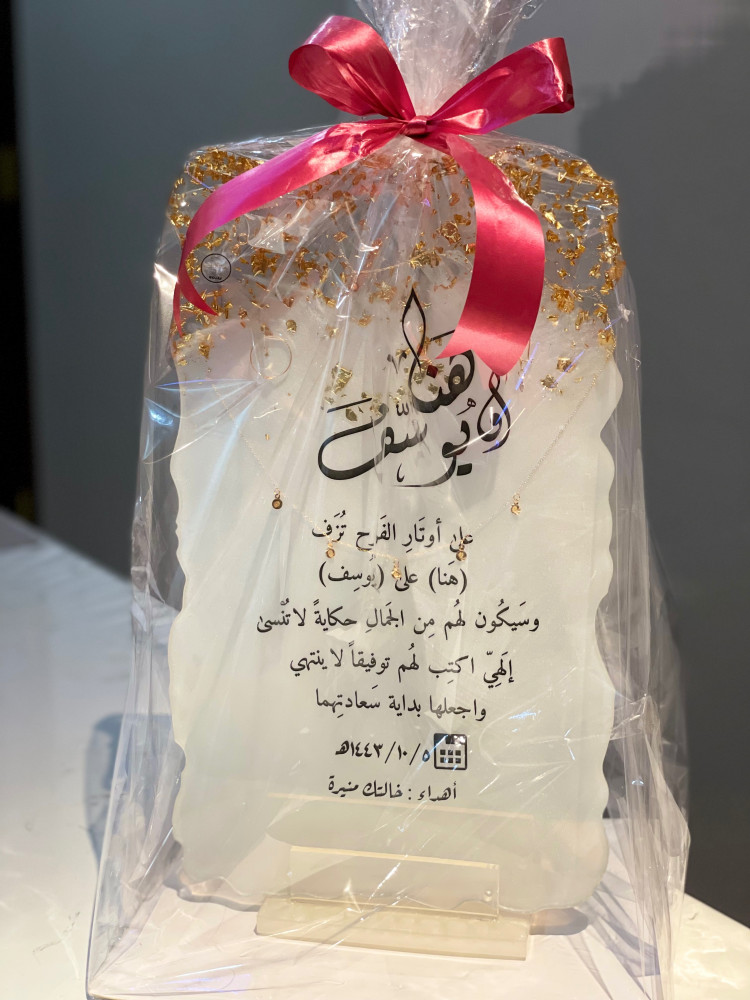 هَنا
ويُوسِّف
على أوتَارِ الفَرحِ تُزَف
(هَنا) على (يُوسِف)
وسَيكُون لهُم مِن الجَمالِ حكايةً لا تُنْسىٰ
إلَهِيّ اكتِب لهُم توفيقاً لا ينتهي
واجعلها بداية سَعادتِهما
١٤٤٣/١٠/٥هـ
أهداء : خالتك منيرة